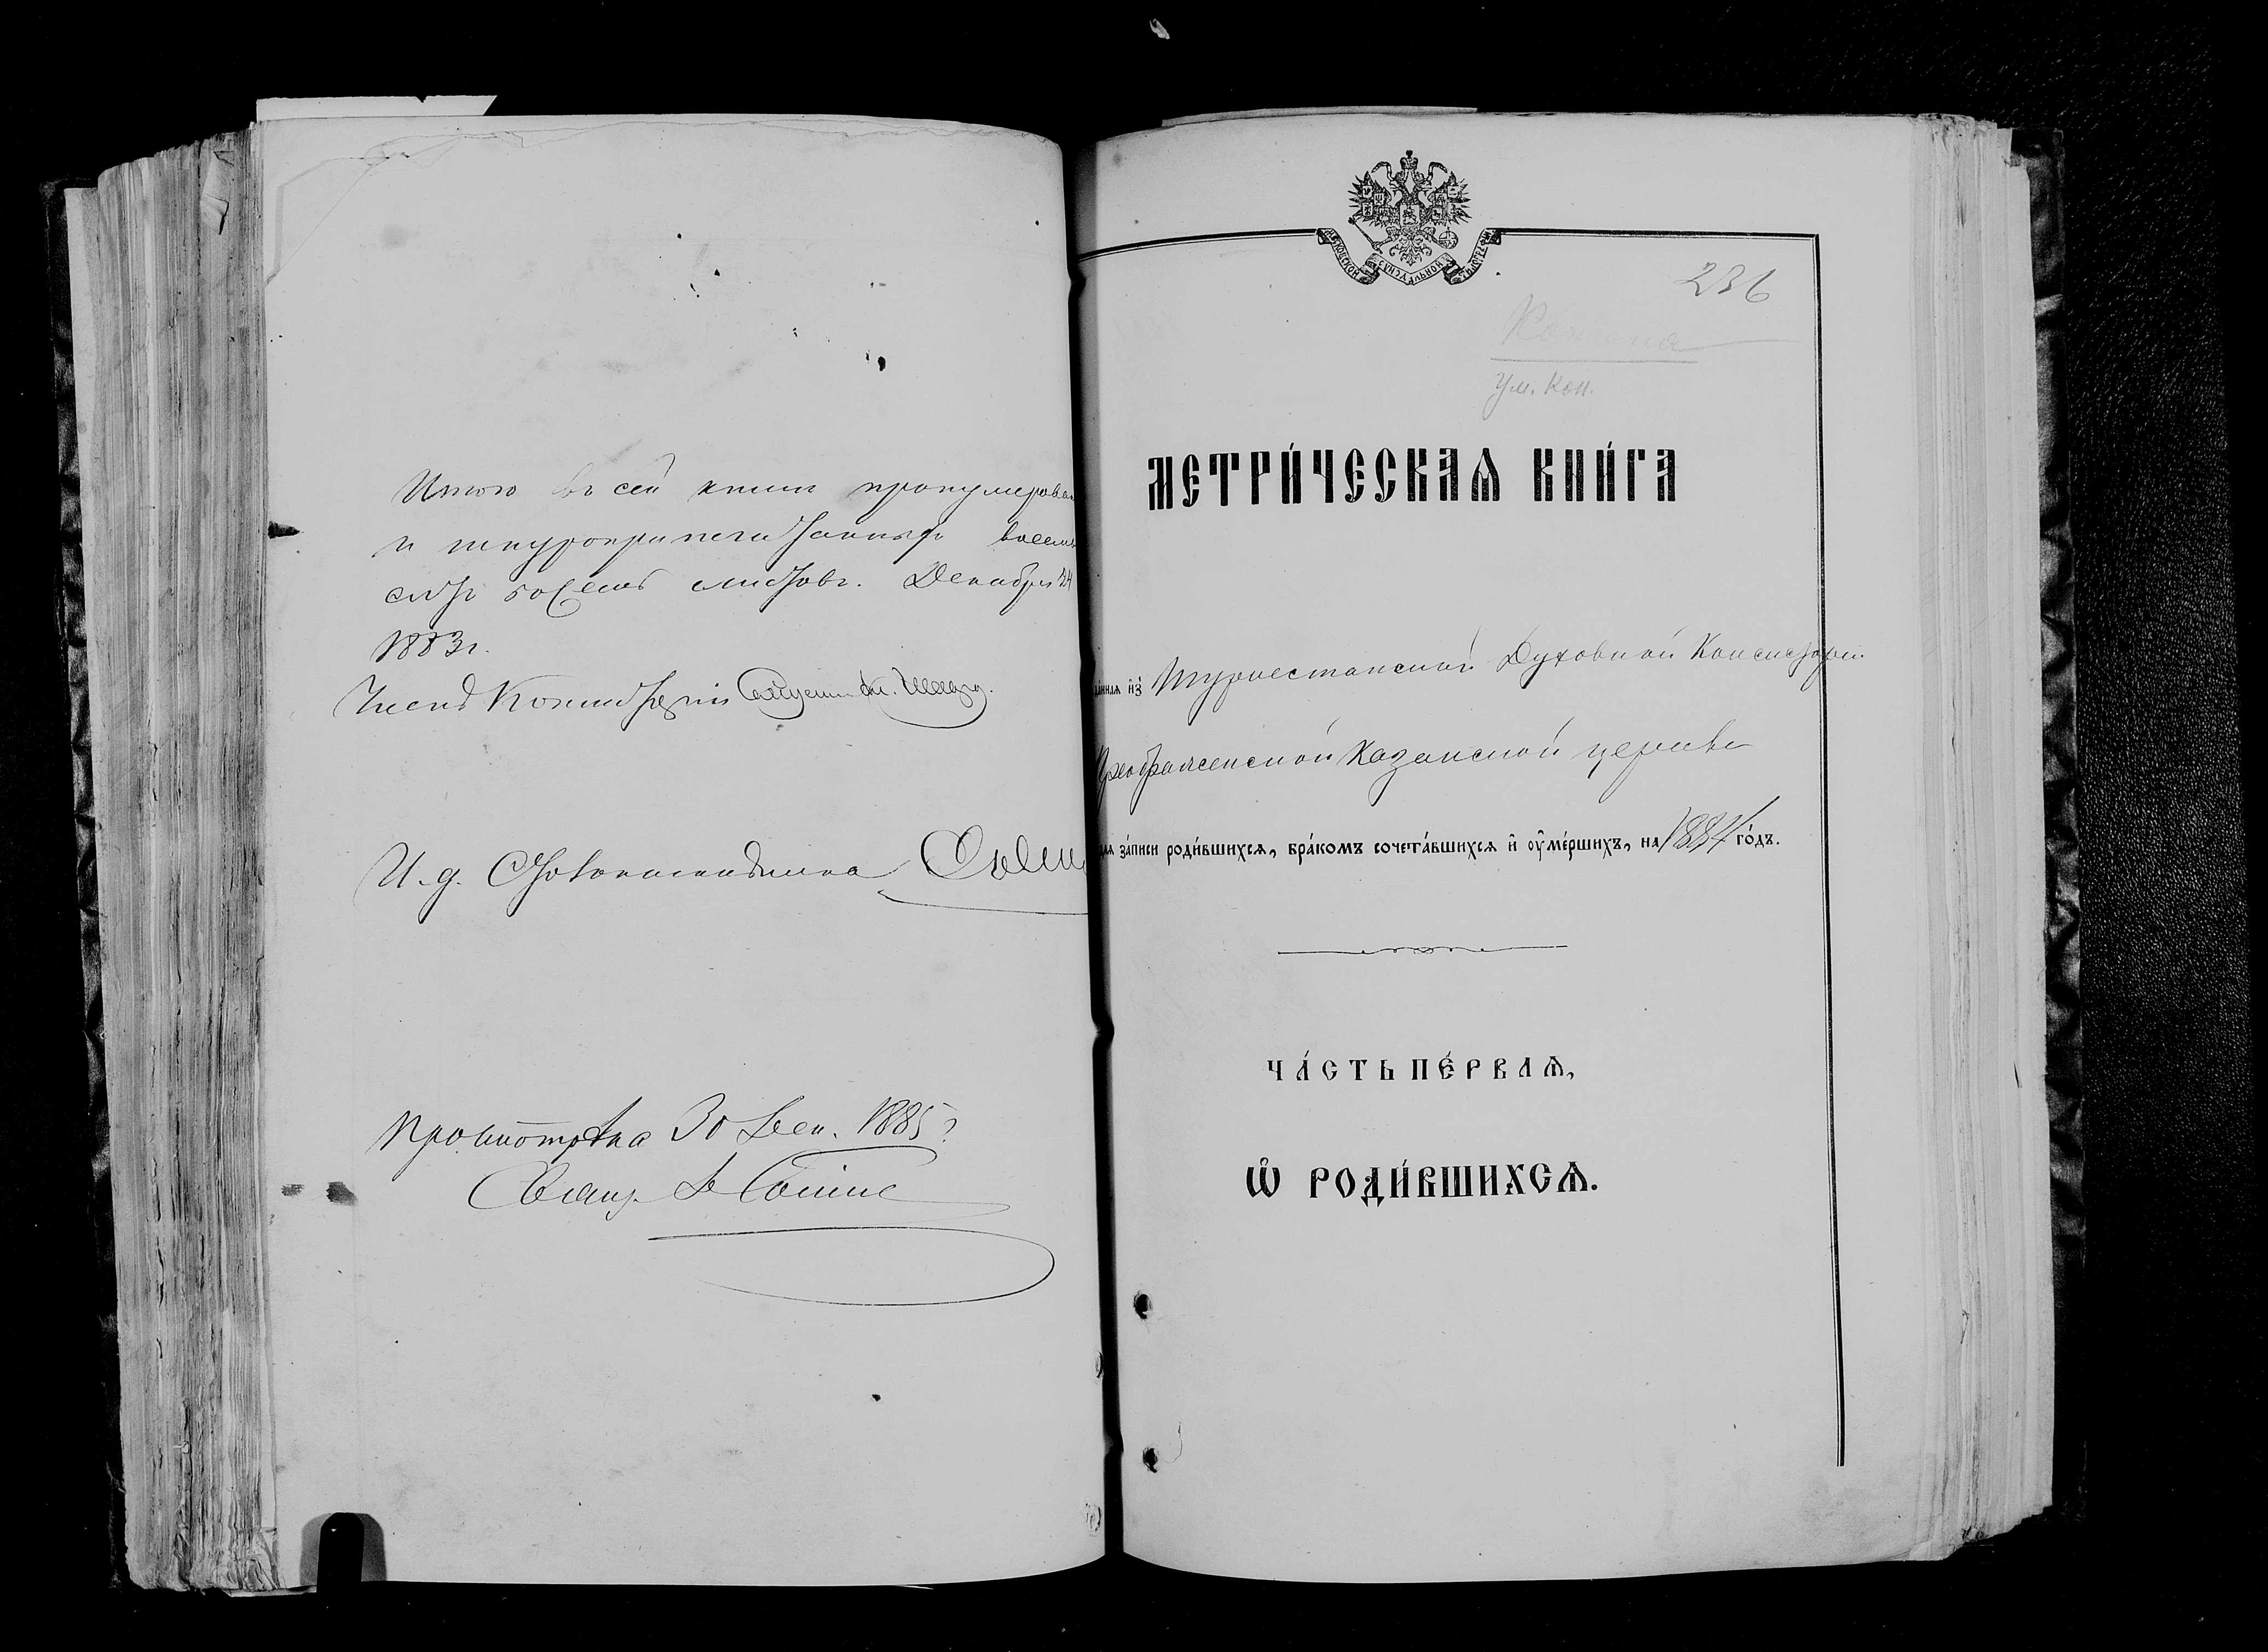 Итого въ сей книге пронумерован
и шнуроприпечатанныхъ восемь
листовъ. Декабря 24
1883 г.
Членъ Консисторіи
И. д. Столоначальника
Просмотрена 30 Сен. 1885 г.
236
Ум. Кон.
МЕТРИ́ЧЕСКАѦ КНИ́ГА
да́ннаѧ и҆з̾ Туркестанской Духовной Консисторіи
Преображенской Казанской церкви
для за́писи роди́вшихсѧ, бра́комъ сочета́вшихсѧ и҆ ᲂу҆ме́ршихъ, на 1884 го́дъ.
ЧА́СТЬ ПЕ́РВАѦ,
Ѽ РОДИ́ВШИХСѦ.